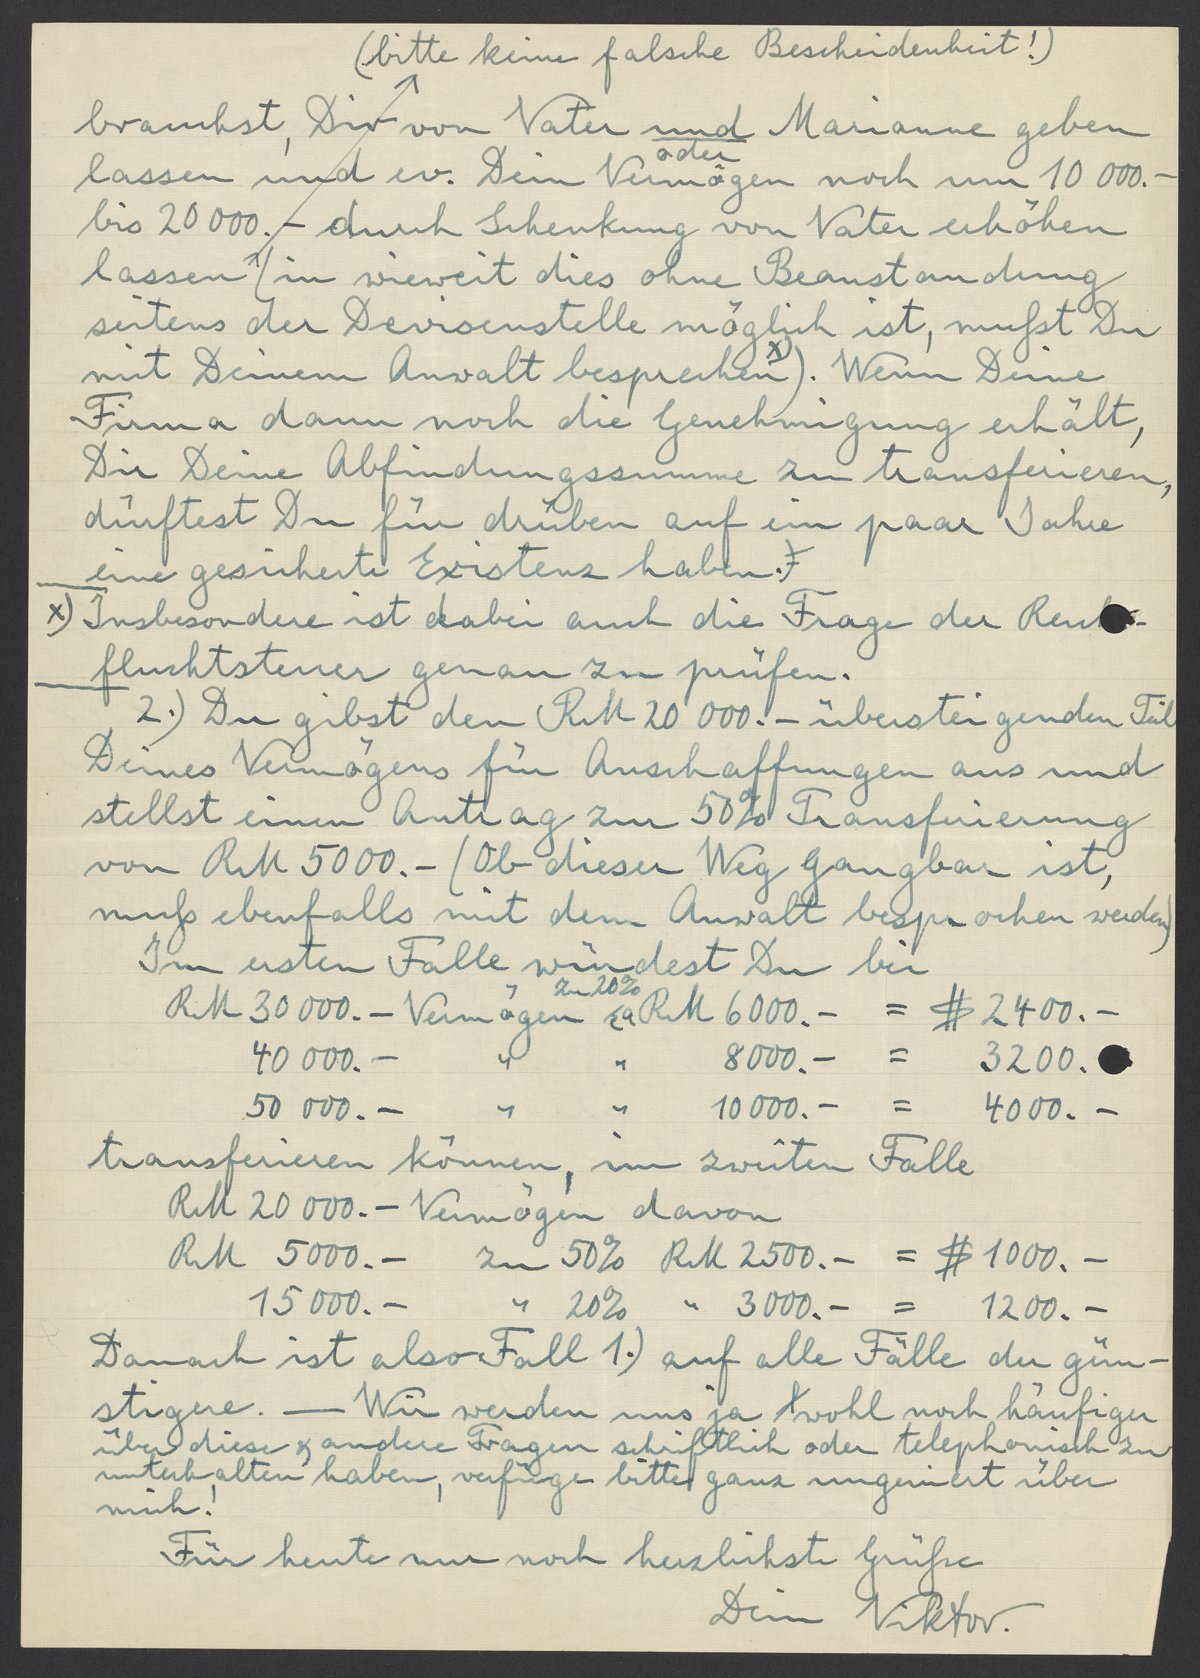 (bitte keine falsche Bescheidenheit!)
brauchst, Dir von Vater und Marianne geben
oder
lassen und ev. Dein Vermögen noch um 10 000.-
bis 20 000.- durch Schenkung von Vater erhöhen
lassen (in wieweit dies ohne Beanstandung
seitens der Devisenstelle möglich ist, mußt Du
mit Deinem Anwalt besprechen x)). Wenn Deine
Firma dann noch die Genehmigung erhält,
Dir Deine Abfindungssumme zu transferieren,
dürftest Du für drüben auf ein paar Jahre
eine gesicherte Existenz haben.
x) Insbesondere ist dabei auch die Frage der Reichs-
fluchtsteuer genau zu prüfen.
2.) Du gibst den RM 20 000.- übersteigenden Teil
Deines Vermögens für Anschaffungen aus und
stellst einen Antrag zur 50% Transferierung
von RM 5000.- (Ob dieser Weg gangbar ist,
muß ebenfalls mit dem Anwalt besprochen werden)
Im ersten Falle würdest Du bei
zu 20%
RM 30 000.- Vermögen ca RM 6000.- = $ 2400.-
40 000.- " " 8000.- = 3200.
50 000.- " " 10 000.- = 4000.-
transferieren können, im zweiten Falle
RM 20 000.- Vermögen davon
RM 5000.- zu 50% RM 2500.- = $ 1000.-
15 000.- " 20% " 3000.- = 1200.-
Danach ist also Fall 1.) auf alle Fälle der gün-
stigere. — Wir werden uns ja wohl noch häufiger
über diese & andere Fragen schriftlich oder telephonisch zu
unterhalten haben, verfüge bitte ganz ungeniert über
mich!
Für heute nur noch herzlichste Grüße
Dein Viktor.